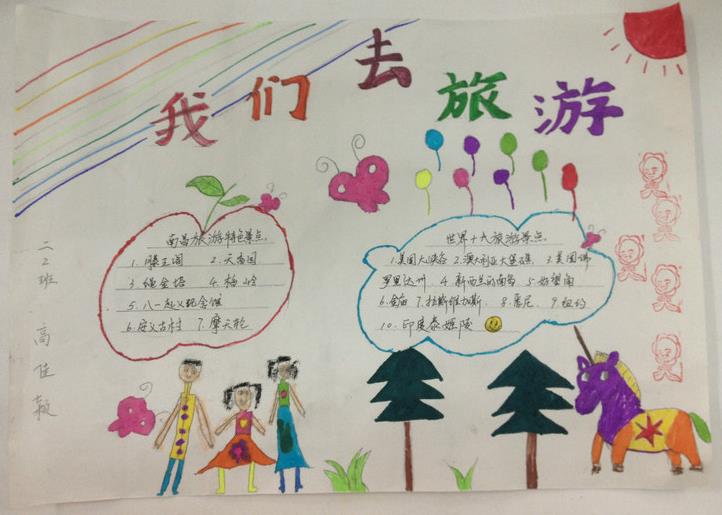 我们去旅游
南昌旅游特色景点
1. 滕王阁 2. 天香园
3 绳金塔 4. 梅岭
5. 八一起义纪念馆
6. 安义古村 7. 摩天轮
世界十大旅游景点
1. 美国大峡谷 2. 澳大利亚大堡礁 3 美国佛
罗里达州 4 新西兰的南岛 5 好望角
6. 金庙 7. 拉斯维加斯 8. 悉尼 9. 纽约
10. 印度泰姬陵
三2班 高佳颖